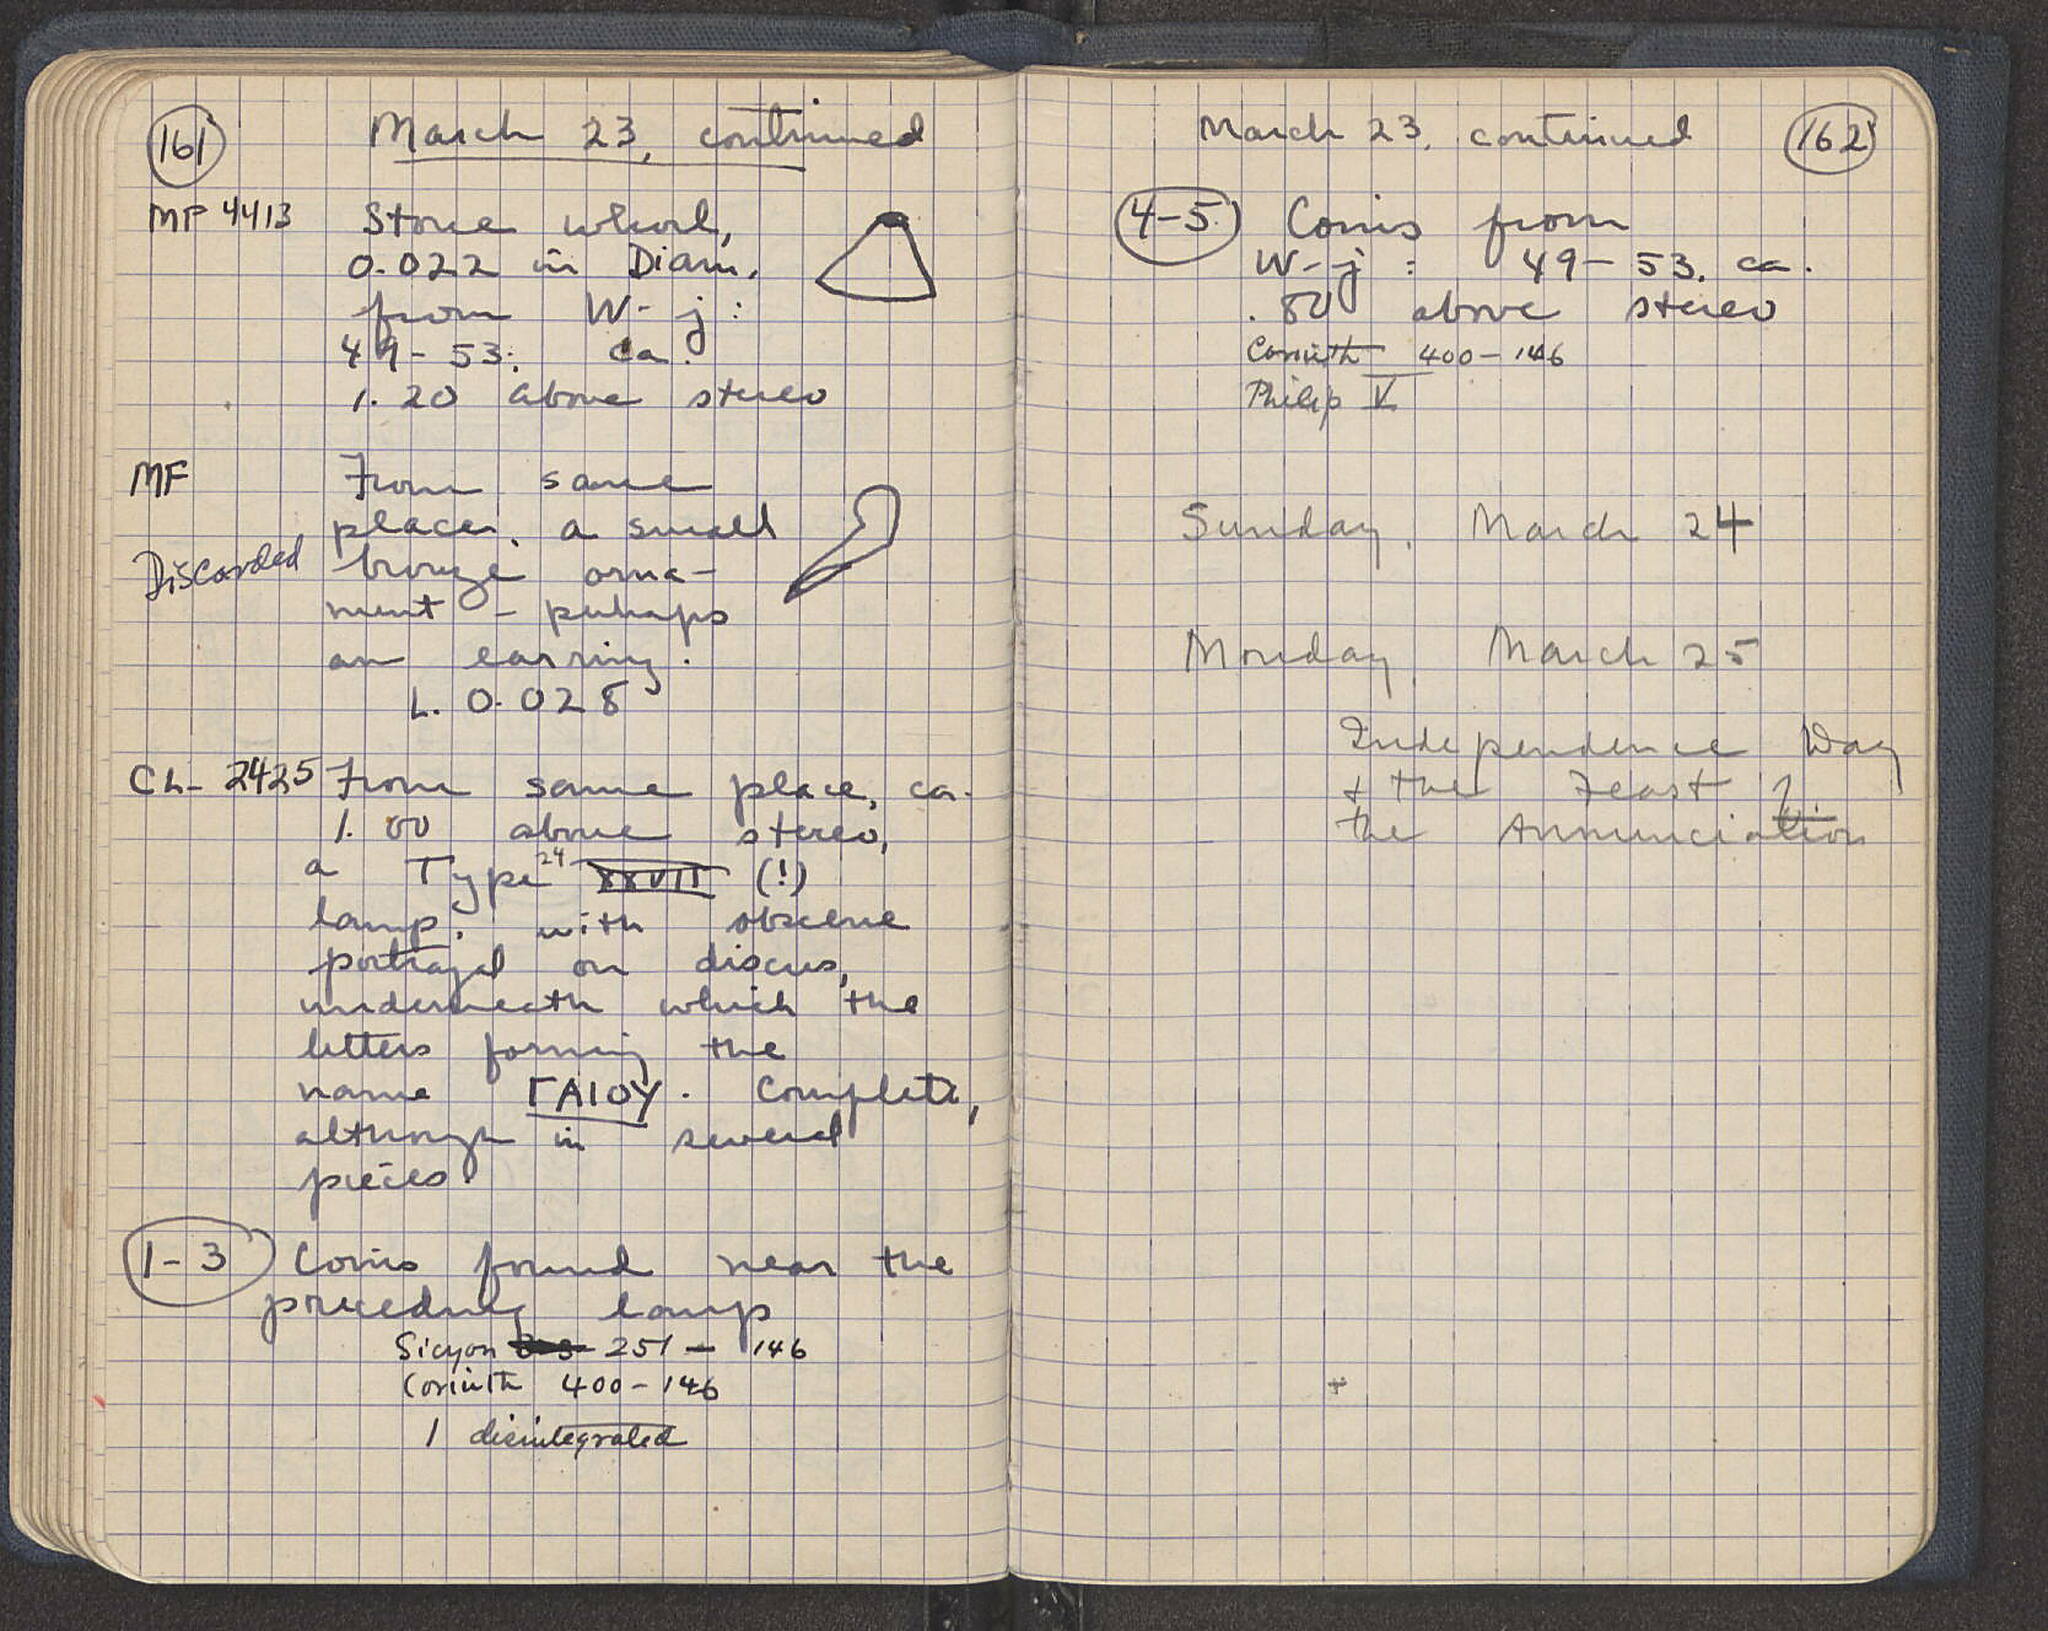 161
March 23, continued
MF 4413
Stone whorl,
0.022 in Diam.
from W-j:
49-53: ca.
1.20 above stereo
MF
Discarded
From same
place, a small
bronze orna-
ment - perhaps
an earring.
L. 0.028
CL- 2425 From same place, ca.
1.00 above stereo,
a Type 24 XXVII (!)
lamp, with obscene
portrayal on discus,
underneath which the
letters forming the
name ΓΑΙΟΥ. Complete,
although in several
pieces.
1-3 Coins found near the
preceding lamp
Sicyon 251 - 146
Corinth 400-146
1 disintegrated
March 23, continued
162
4-5. Coins from
W-j: 49-53, ca.
.80 above stereo
Corinth 400-146
Philip V
Sunday, March 24
Monday March 25
Independence Day
+ the Feast of
the Annunciation